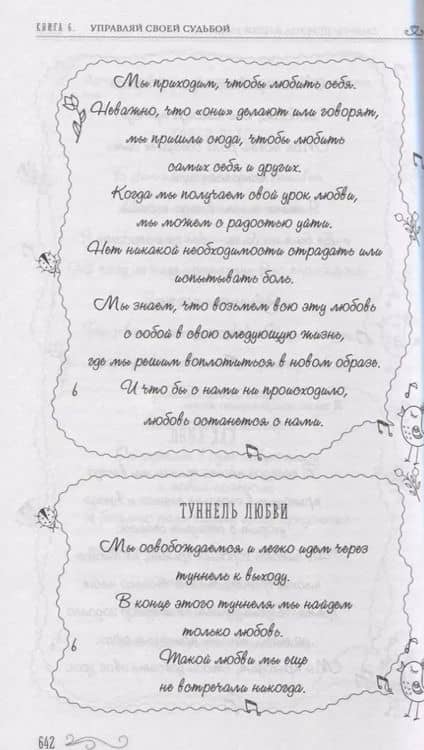 КНИГА 6. УПРАВЛЯЙ СВОЕЙ СУДЬБОЙ
Мы приходим, чтобы любить себя.
Неважно, что «они» делают или говорят,
мы пришли сюда, чтобы любить
самих себя и других.
Когда мы получаем свой урок любви,
мы можем с радостью уйти.
Нет никакой необходимости страдать или
испытывать боль.
Мы знаем, что возьмем всю эту любовь
с собой в свою следующую жизнь,
где мы решим воплотиться в новом образе.
И что бы с нами ни происходило,
любовь останется с нами.
ТУННЕЛЬ ЛЮБВИ
Мы освобождаемся и легко идем через
туннель к выходу.
В конце этого туннеля мы найдем
только любовь.
Такой любви мы еще
не встречали никогда.
642